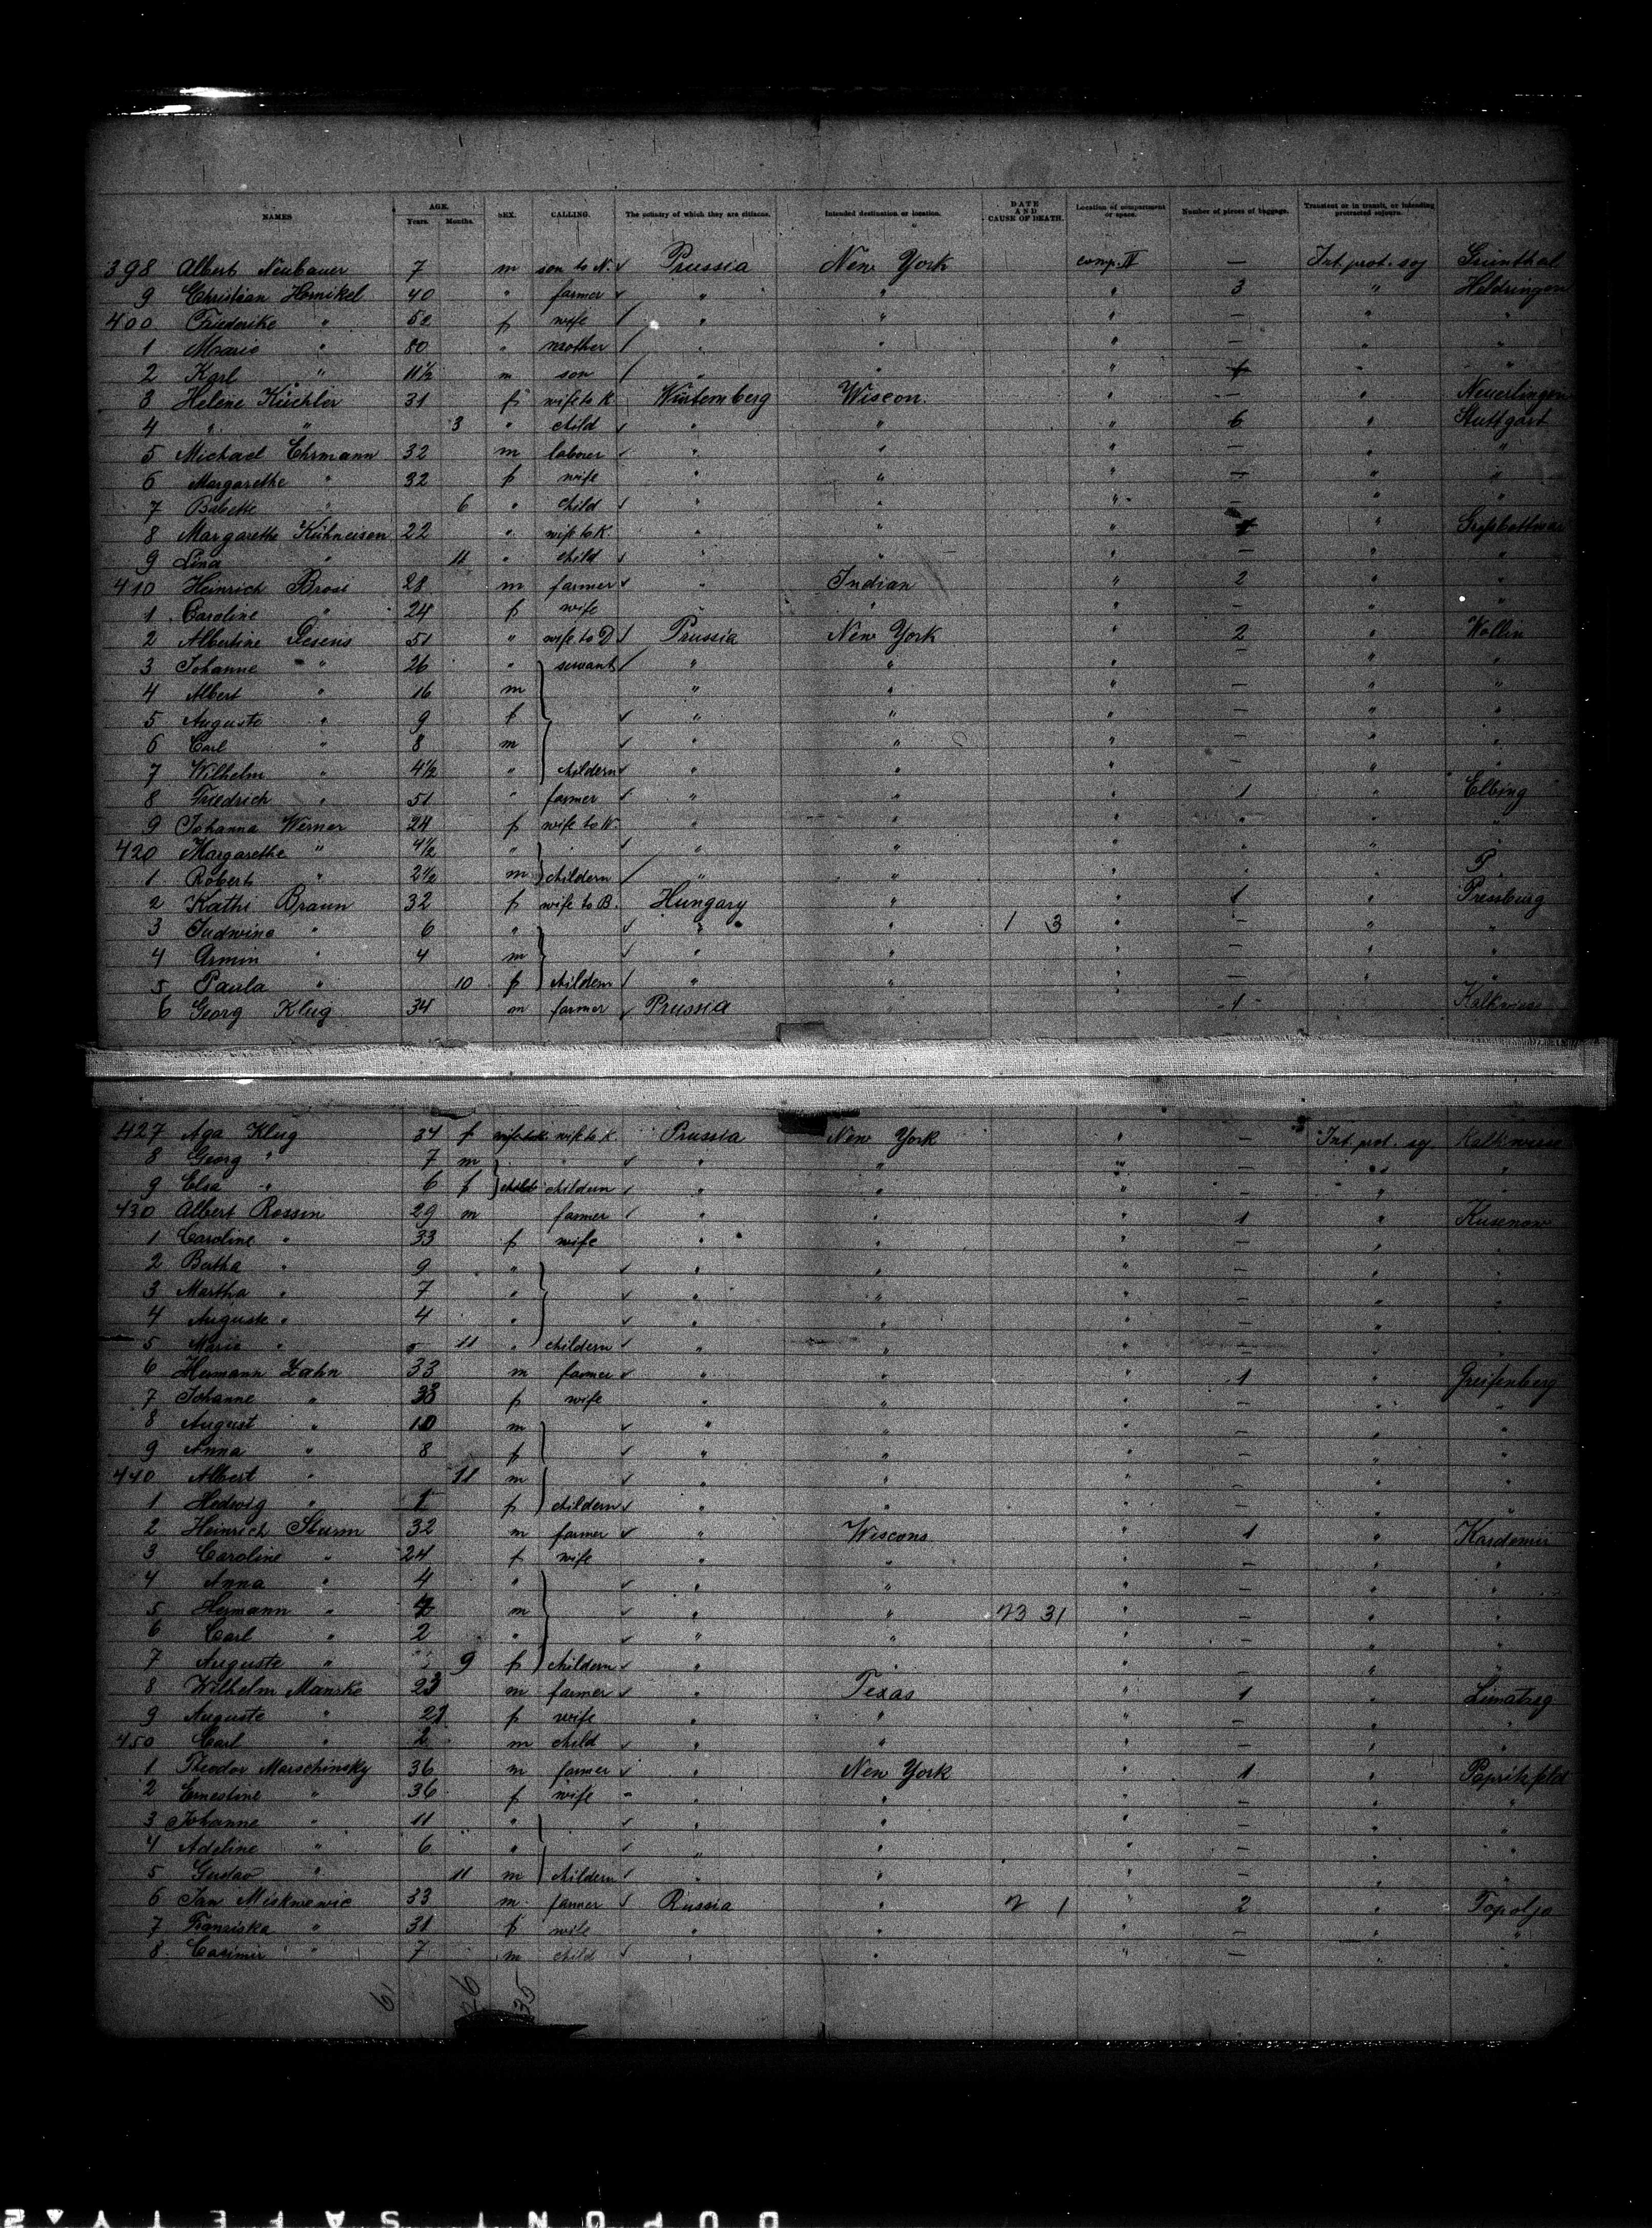 NAMES AGE. Years. Months. SEX. CALLING. The country of which they are citizens. Intended destination or location. DATE AND CAUSE OF DEATH. Location of compartment or space. Number of pieces of baggage. Transient or in transit, or intending protracted sojourn.
398 Albert Neubauer 7 m son to N. Prussia New York comp. IV — Int. prot. soj Grünthal
9 Christian Hornikel 40 " farmer " " " 3 " Heldringen
400 Friederike " 52 f wife " " " — " "
1 Marie " 80 " mother " " " — " "
2 Karl " 11½ m son " " " " "
3 Helene Küchler 31 f wife to K Würtemberg Wiscon. " — "
4 " " 3 " child " " " 6 " Stuttgart
5 Michael Ehrmann 32 m laborer " " " — " "
6 Margarethe " 32 f wife " " " — " "
7 Babette " 6 " child " " " — " "
8 Margarethe Kühneisen 22 " wife to K. " " " "
9 Lina " 11 " child " " " — " "
410 Heinrich Brosi 28 m farmer " Indian " 2 " "
1 Caroline " 24 f wife " " " — " "
2 Albertine Sesens 51 " wife to D Prussia New York " 2 " Wollin
3 Johanne " 26 " servant " " " — " "
4 Albert " 16 m " " " — " "
5 Auguste " 9 f " " " — " "
6 Carl " 8 m " " " — " "
7 Wilhelm " 4½ " childern " " " — " "
8 Friedrich " 51 " farmer " " " 1 " Elbing
9 Johanna Werner 24 f wife to W. " " " " " "
420 Margarethe " 4½ " " " " " " "
1 Robert " 2½ m childern " " " " " P
2 Kathi Braun 32 f wife to B. Hungary " " 1 " Pressburg
3 Ludwina " 6 " " " 1 3 " — " "
4 Armin " 4 m " " " — " "
5 Paula " 10 f childern " " " — " "
6 Georg Klug 34 m farmer Prussia " 1 Kalkwiese
427 Aga Klug 34 f wife to K. Prussia New York " — Int. prot. soj Kalkwiese
8 Georg " 7 m " " " " — " "
9 Elsa " 6 f childern " " " — " "
430 Albert Rossin 29 m farmer " " " 1 " Kusenow
1 Caroline " 33 f wife " " " — " "
2 Bertha " 9 " " " " — " "
3 Martha " 7 " " " " — " "
4 Auguste " 4 " " " " — " "
5 Marie " 11 " childern " " " — " "
6 Hermann Zahn 33 m farmer " " " 1 " Greifenberg
7 Johanne " 33 f wife " " " — " "
8 August " 10 m " " " — " "
9 Anna " 8 f " " " — " "
440 Albert " 11 m " " " — " "
1 Hedwig " 1 f childern " " " — " "
2 Heinrich Sturm 32 m farmer " Wiscons. " 1 "
3 Caroline " 24 f wife " " " — " "
4 Anna " 4 " " " " — " "
5 Hermann " m " " 23 31 " — " "
6 Carl " 2 " " " " — " "
7 Auguste " 9 f childern " " " — " "
8 Wilhelm Manske 23 m farmer " Texas " 1 "
9 Auguste " 21 f wife " " " — " "
450 Carl " 2 m child " " " — " "
1 Theodor Marschinsky 36 m farmer " New York " 1 " Papritzfeld
2 Ernestine " 36 f wife " " " — " "
3 Johanne " 11 " " " " — " "
4 Adeline " 6 " " " " — " "
5 Gustav " 11 m childern " " " — " "
6 Jan Miskiewic 33 m farmer Russia " 2 1 " 2 " Topolja
7 Franziska " 31 f wife " " " — " "
8 Casimir " 7 m child " " " — " "
6 26 35
DUPONT SAFETY